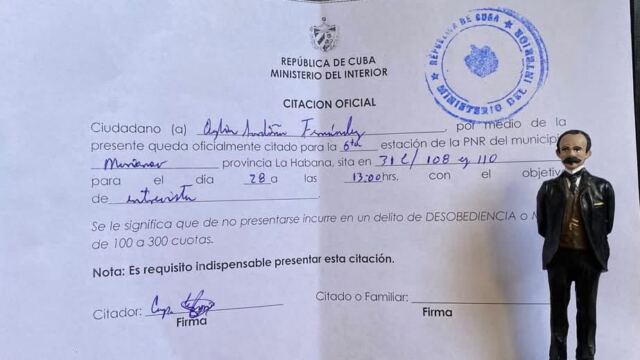 REPÚBLICA DE CUBA
MINISTERIO DEL INTERIOR
REPÚBLICA DE CUBA
MINISTERIO DEL INTERIOR
CITACION OFICIAL
Ciudadano (a) Fernández, por medio de la
presente queda oficialmente citado para la 6ta estación de la PNR del municipio
provincia La Habana, sita en 31 e/ 108 y 110
para el día 28 a las 13:00 hrs, con el objetiv
de entrevista.
Se le significa que de no presentarse incurre en un delito de DESOBEDIENCIA o M
de 100 a 300 cuotas.
Nota: Es requisito indispensable presentar esta citación.
Citador:
Firma
Citado o Familiar:
Firma